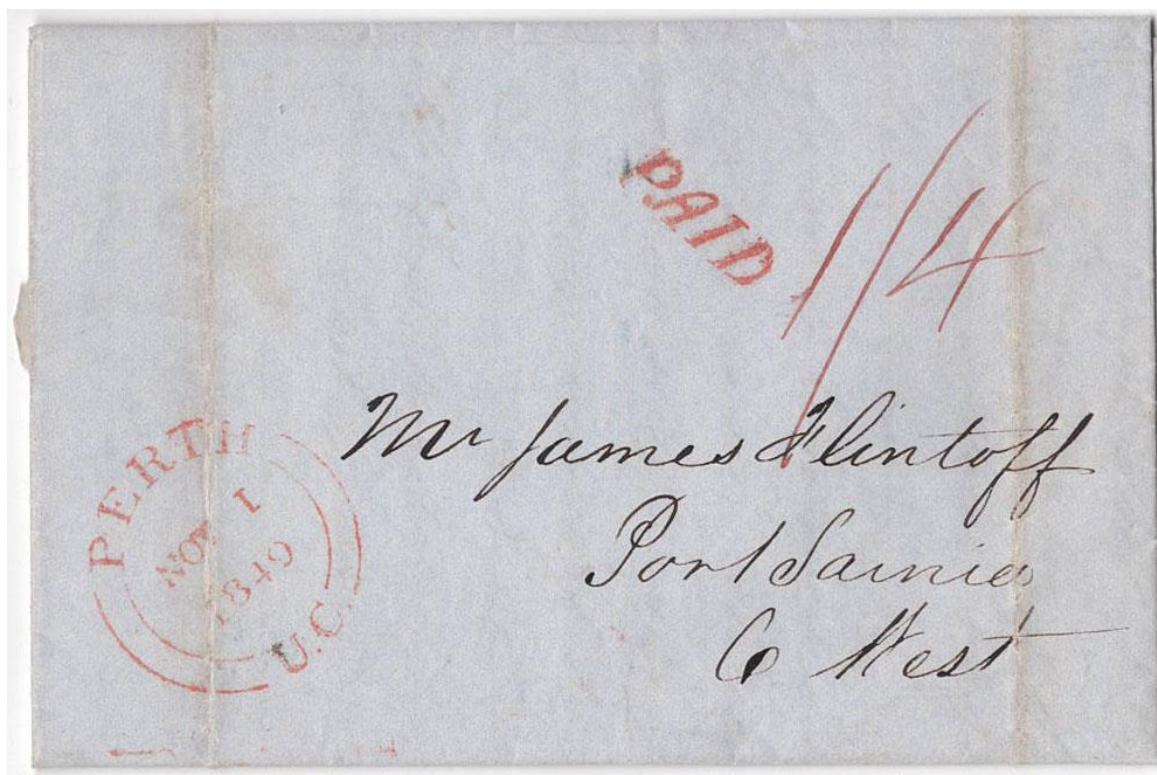 PAID 1/4
Mr James Flintoff
Port Sarnia
C West
PERTH
NOV 1
1849
U.C.